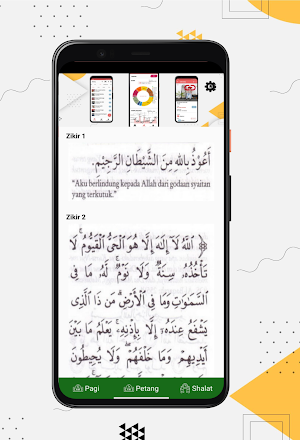 Zikir 1
أَعُوْذُ بِاللهِ مِنَ الشَّيْطَانِ الرَّجِيْمِ.
“Aku berlindung kepada Allah dari godaan syaitan
yang terkutuk.”
Zikir 2
﴿اللَّهُ لَا إِلَهَ إِلَّا هُوَ الْحَيُّ الْقَيُّومُ لَا
تَأْخُذُهُ سِنَةٌ وَلَا نَوْمٌ لَهُ مَا فِي
السَّمَاوَاتِ وَمَا فِي الْأَرْضِ مَن ذَا الَّذِي
يَشْفَعُ عِندَهُ إِلَّا بِإِذْنِهِ يَعْلَمُ مَا بَيْنَ
أَيْدِيهِمْ وَمَا خَلْفَهُمْ وَلَا يُحِيطُونَ
Pagi
Petang
Shalat